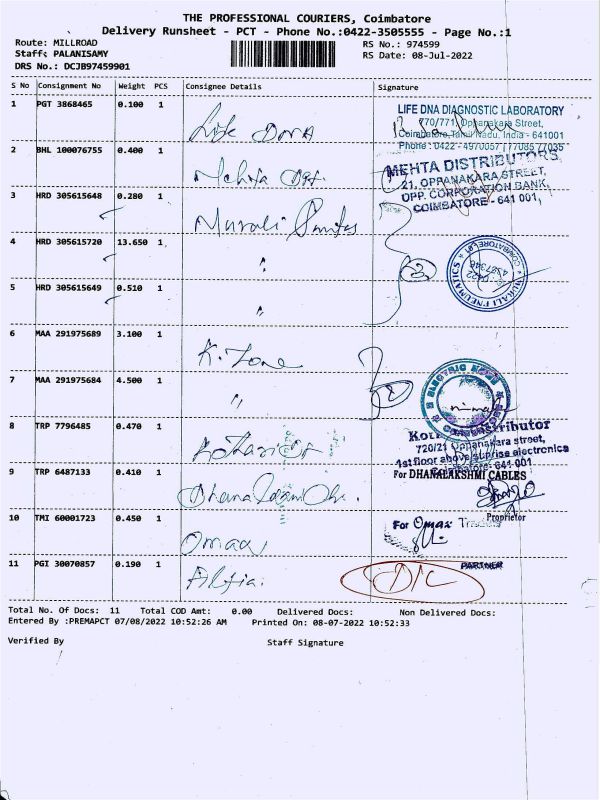 THE PROFESSIONAL COURIERS, Coimbatore
Delivery Runsheet - PCT - Phone No.:0422-3505555 - Page No.:1
Route: MILLROAD RS No.: 974599
Staff: PALANISAMY RS Date: 08-Jul-2022
DRS No.: DCJB97459901
S No Consignment No Weight PCS Consignee Details Signature
1 PGT 3868465 0.100 1 Life DNA
LIFE DNA DIAGNOSTIC LABORATORY
770/771, Oppanakara Street,
Coimbatore, Tamil Nadu, India - 641001
Phone : 0422 - 4970057 / 77085 77035
2 BHL 100076755 0.400 1 Mehta
MEHTA DISTRIBUTORS,
21, OPPANAKARA STREET,
OPP. CORPORATION BANK,
COIMBATORE - 641 001,
3 HRD 305615648 0.280 1 Murali
4 HRD 305615720 13.650 1 "
MURALI PNEUMATICS
5 HRD 305615649 0.510 1 "
6 MAA 291975689 3.100 1 K. Zone
7 MAA 291975684 4.500 1 "
ELECTRIC
8 TRP 7796485 0.470 1 Kothari
720/21 Oppanakara street,
1st floor above suprise electronics
Coimbatore- 641 001
9 TRP 6487133 0.410 1
For DHANALAKSHMI CABLES
Proprietor
10 TMI 60001723 0.450 1 Omax
For Omax
PARTNER
11 PGI 30070857 0.190 1 Alfia. D/C
Total No. Of Docs: 11 Total COD Amt: 0.00 Delivered Docs: Non Delivered Docs:
Entered By :PREMAPCT 07/08/2022 10:52:26 AM Printed On: 08-07-2022 10:52:33
Verified By Staff Signature